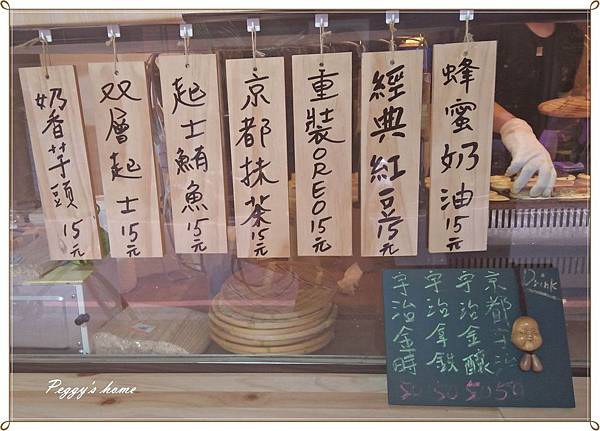 蜂蜜奶油15元
經典紅豆15元
重裝OREO15元
京都抹茶15元
起士鮪魚15元
双層起士15元
奶香芋頭15元
Drink
京都宇治 50
宇治金釀 50
宇治拿鉄 50
宇治金時 50
Peggy's home